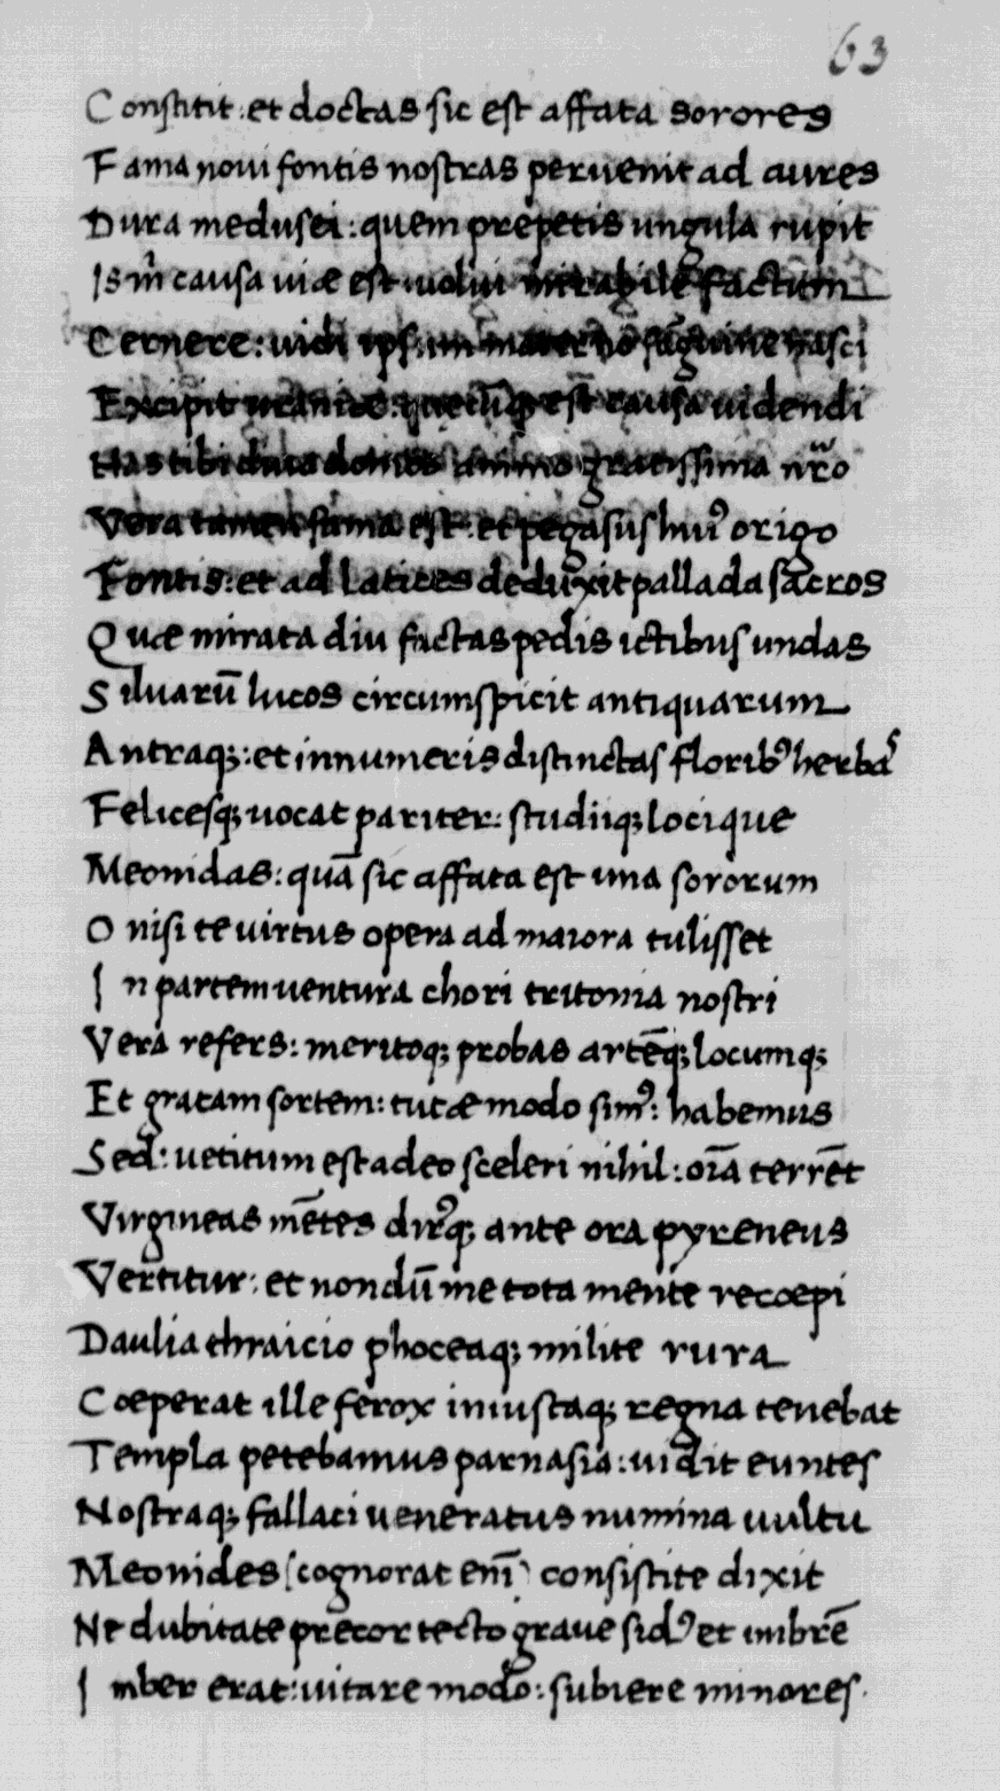 63
Constitit: et doctas sic est affata sorores
Fama noui fontis nostras peruenit ad aures
Dura medusei: quem prepetis ungula rupit
Is m̃ causa uiæ est uolui mirabile factum
Cernere: uidi ipsum materno sãguine nasci
Excipit uranie: est causa uidendi
Has tibi diua domos animo gratissima nr̃o
Vera tamen fama est: et pegasus huiꝰ origo
Fontis: et ad latices deduxit pallada sacros
Quæ mirata diu factas pedis ictibus undas
Siluarũ lucos circumspicit antiquarum
Antraq;: et innumeris distinctas floribꝰ herbas
Felicesq; uocat pariter: studiiq; locique
Meonidas: quã sic affata est una sororum
O nisi te uirtus opera ad maiora tulisset
In partem uentura chori tritonia nostri
Vera refers: meritoq; probas artẽq; locumq;
Et gratam sortem: tutæ modo simꝰ: habemus
Sed: uetitum est adeo sceleri nihil: oĩa terrẽt
Virgineas mẽtes dirꝰq; ante ora pyreneus
Vertitur: et nondũ me tota mente recœpi
Daulia thraicio phoceaq; milite rura
Cœperat ille ferox iniustaq; regna tenebat
Templa petebamus parnasia: uidit euntes
Nostraq; fallaci ueneratus numina uultu
Meonides (cognorat enĩ) consistite dixit
Ne dubitate precor tecto graue sidꝰ et imbrẽ
Imber erat: uitare modo: subiere minores.